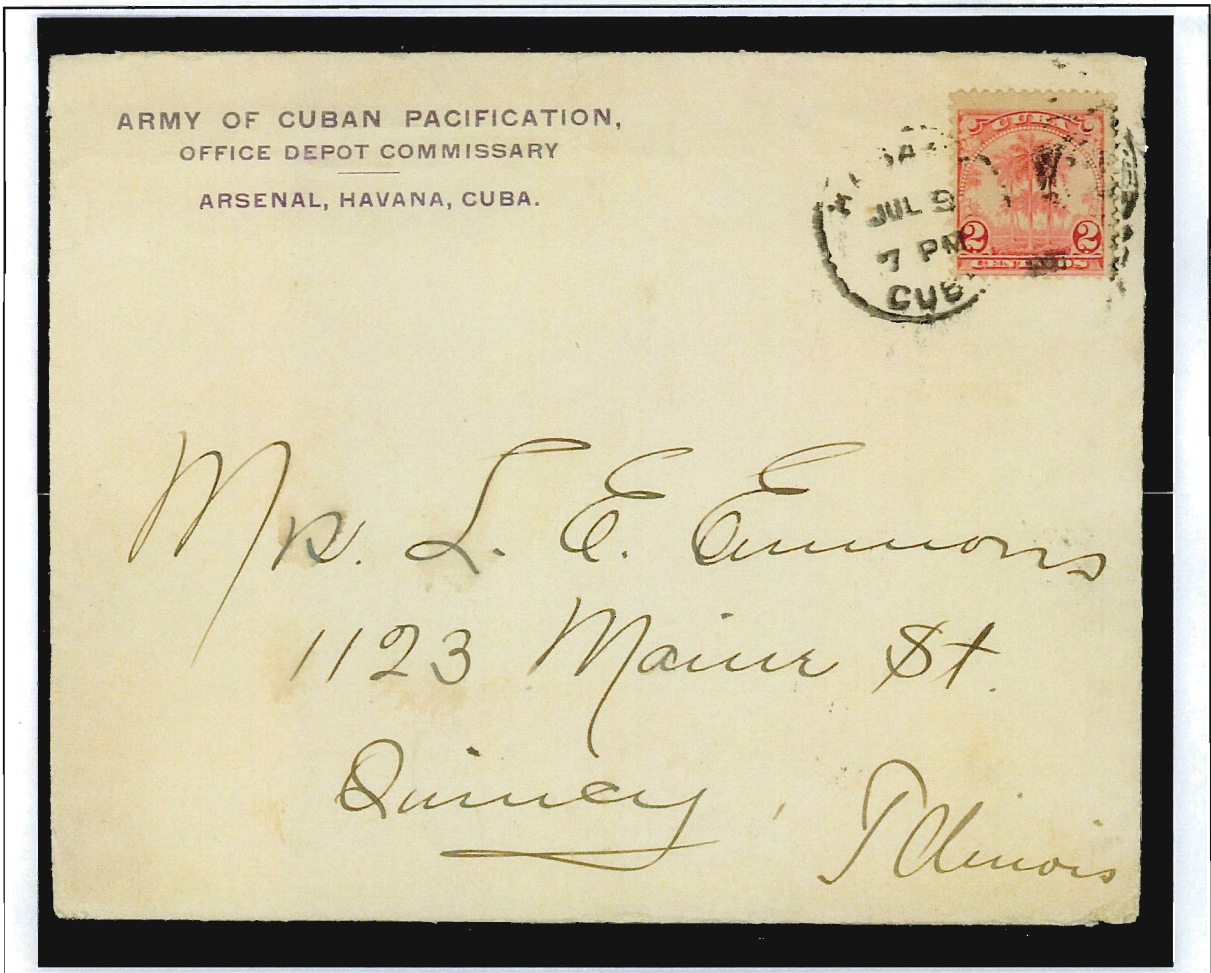 ARMY OF CUBAN PACIFICATION,
OFFICE DEPOT COMMISSARY
ARSENAL, HAVANA, CUBA.
CUBA
2 2
CENTAVOS
JUL
7 PM
CUBA
Mrs. L. E. Emmons
1123 Maine St.
Quincy, Illinois